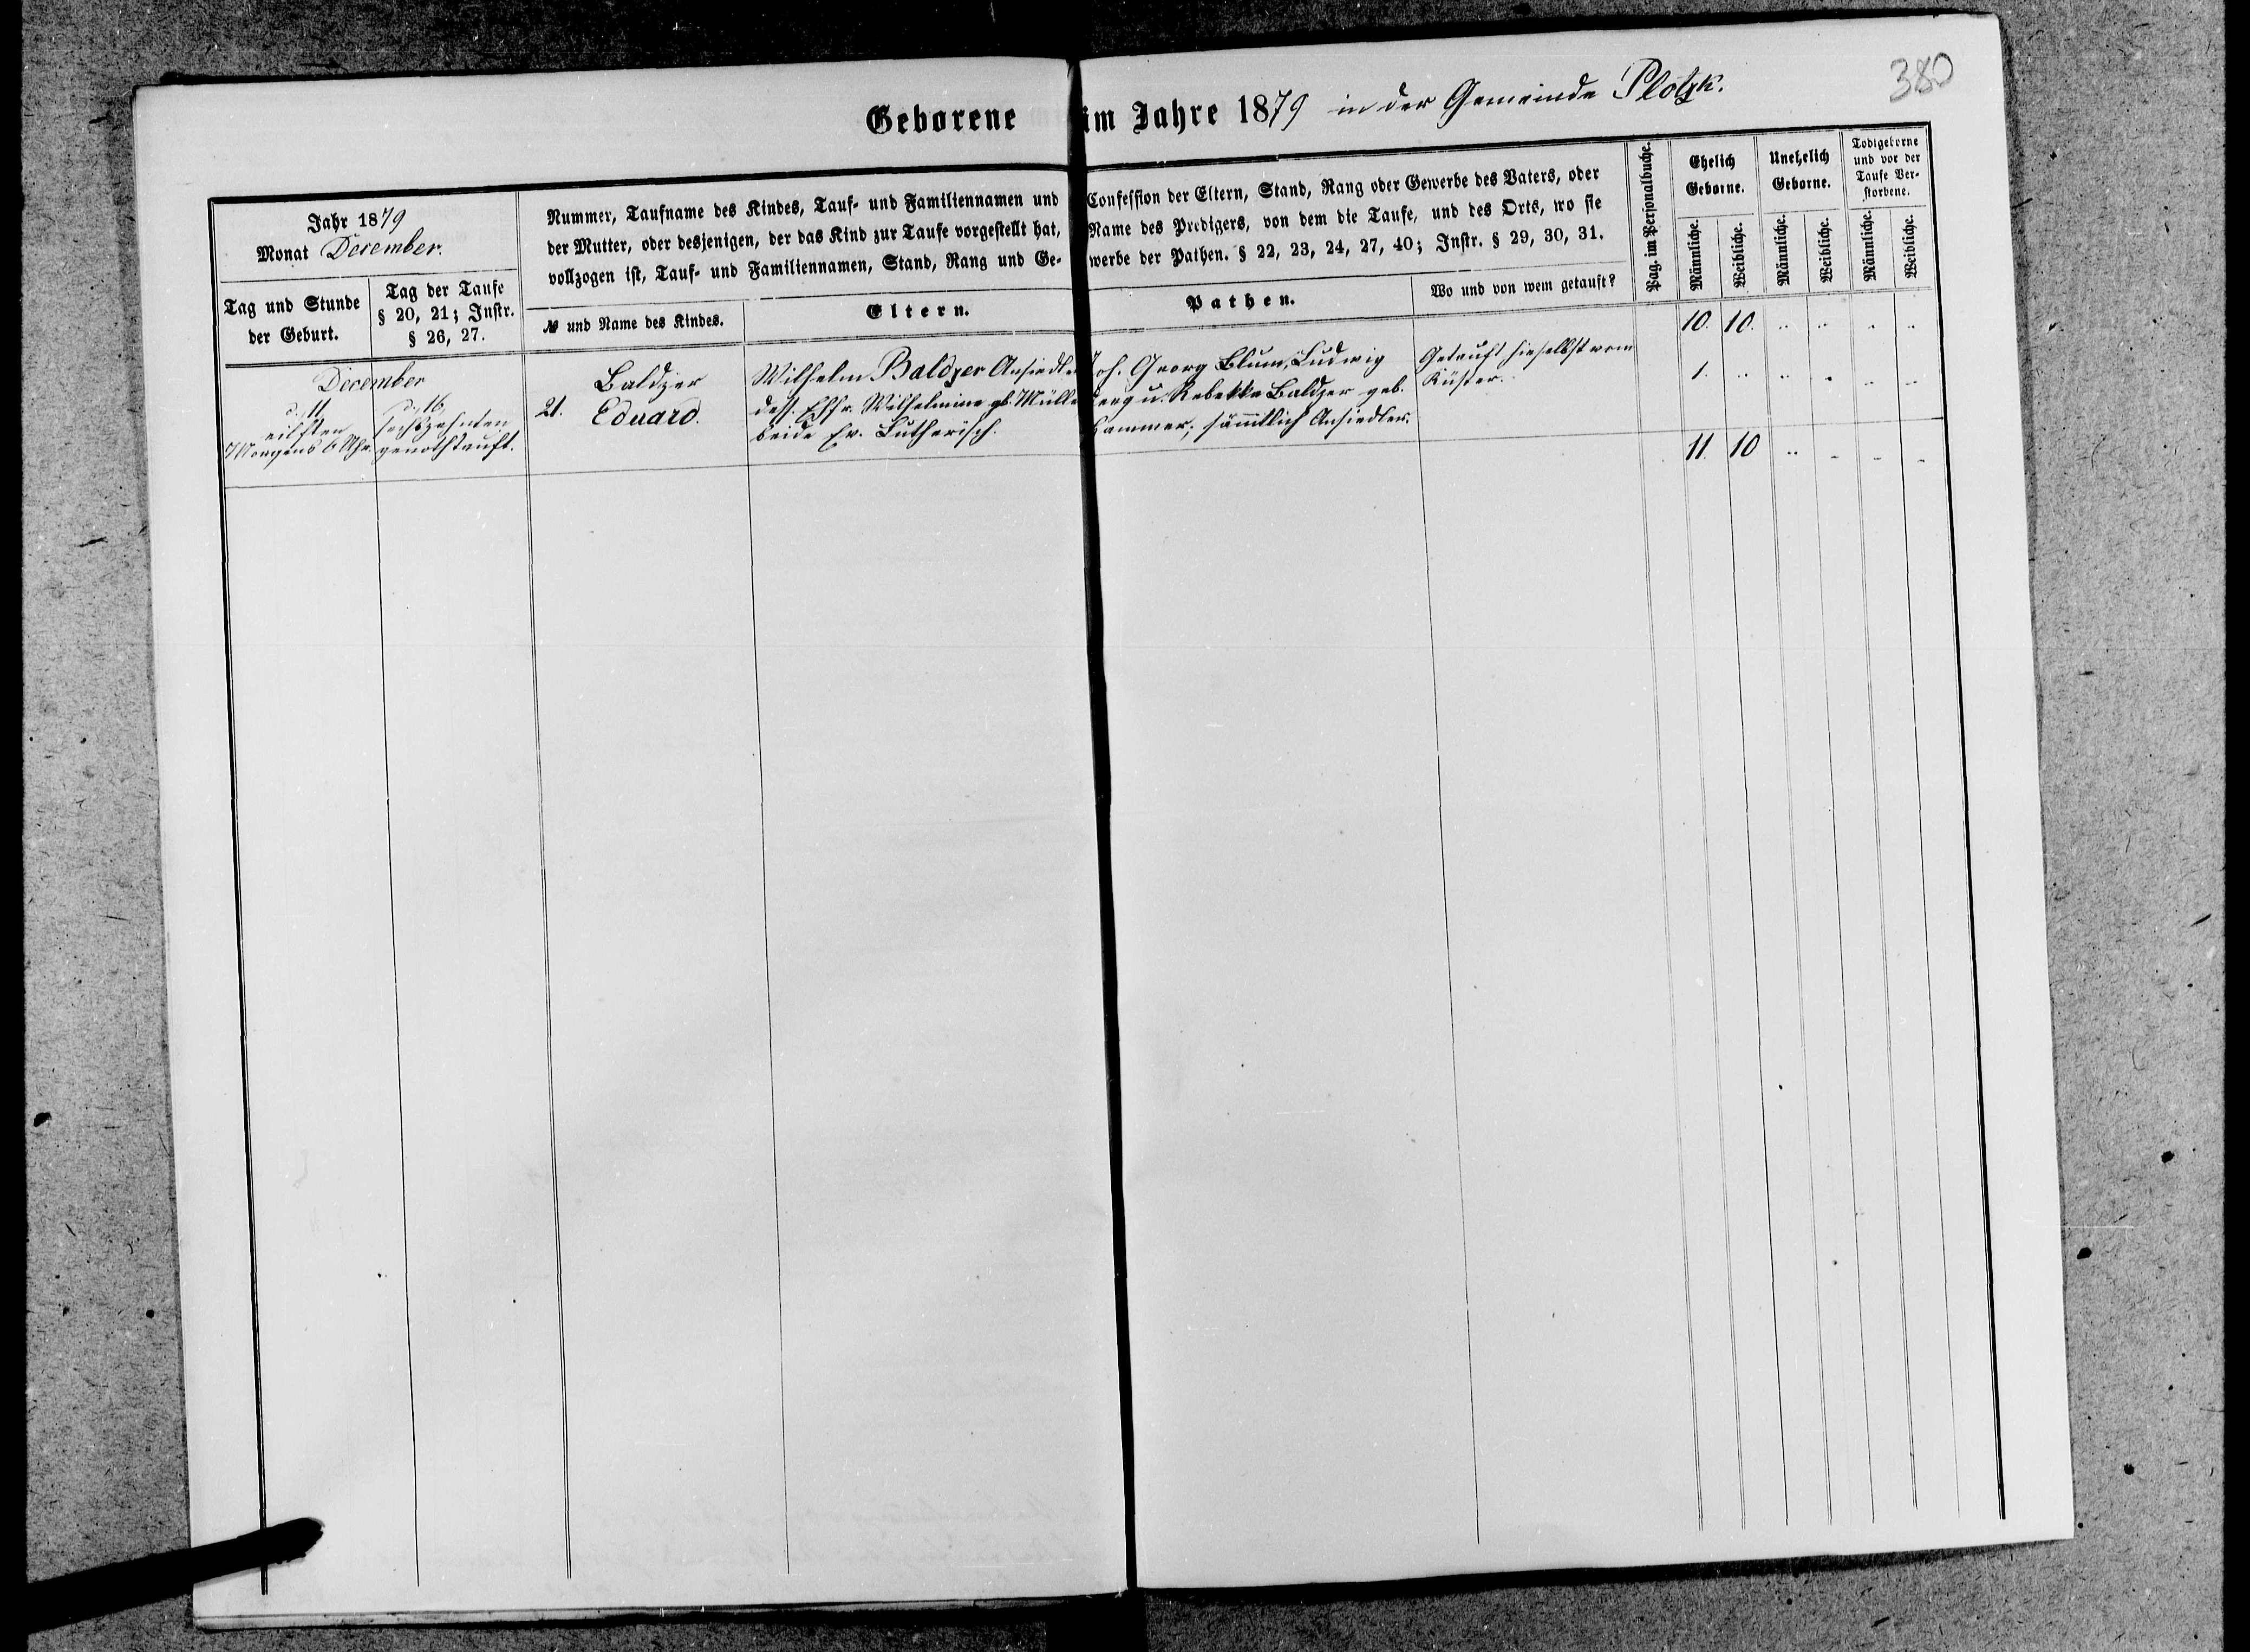 380
Geborene im Jahre 1879 in der Gemeinde Plotzk.
Jahr 1879
Monat December.
Tag und Stunde
der Geburt.
Tag der Taufe
§ 20, 21; Instr.
§ 26, 27.
Nummer, Taufname des Kindes, Tauf- und Familiennamen und Confession der Eltern, Stand, Rang oder Gewerbe des Vaters, oder
der Mutter, oder desjenigen, der das Kind zur Taufe vorgestellt hat, Name des Predigers, von dem die Taufe, und des Orts, wo sie
vollzogen ist, Tauf- und Familiennamen, Stand, Rang und Gewerbe der Pathen. § 22, 23, 24, 27, 40; Instr. § 29, 30, 31.
№ und Name des Kindes.
Eltern.
Pathen.
Wo und von wem getauft?
Pag. im Personalbuche.
Ehelich
Geborne.
Unehelich
Geborne.
Todtgeborne
und vor der
Taufe Ver-
storbene.
Männliche.
Weibliche.
Männliche.
Weibliche.
Männliche.
Weibliche.
10. 10. .. .. .. ..
December
d. 11,
eilften
Morgens 6 Uhr.
d. 16,
sechszehnten
genothtauft.
21.
Baldzer
Eduard.
Wilhelm Baldzer Ansiedle
dess. Ehfr. Wilhelmine gb. Mülle
beide Ev. Lutherisch.
Joh. Georg Blum, Ludwig
u. Rebekka Baldzer geb.
Hammer, sämmtlich Ansiedler.
Getauft hieselbst vom
Küster.
1. .. .. .. .. ..
11. 10 .. .. .. ..